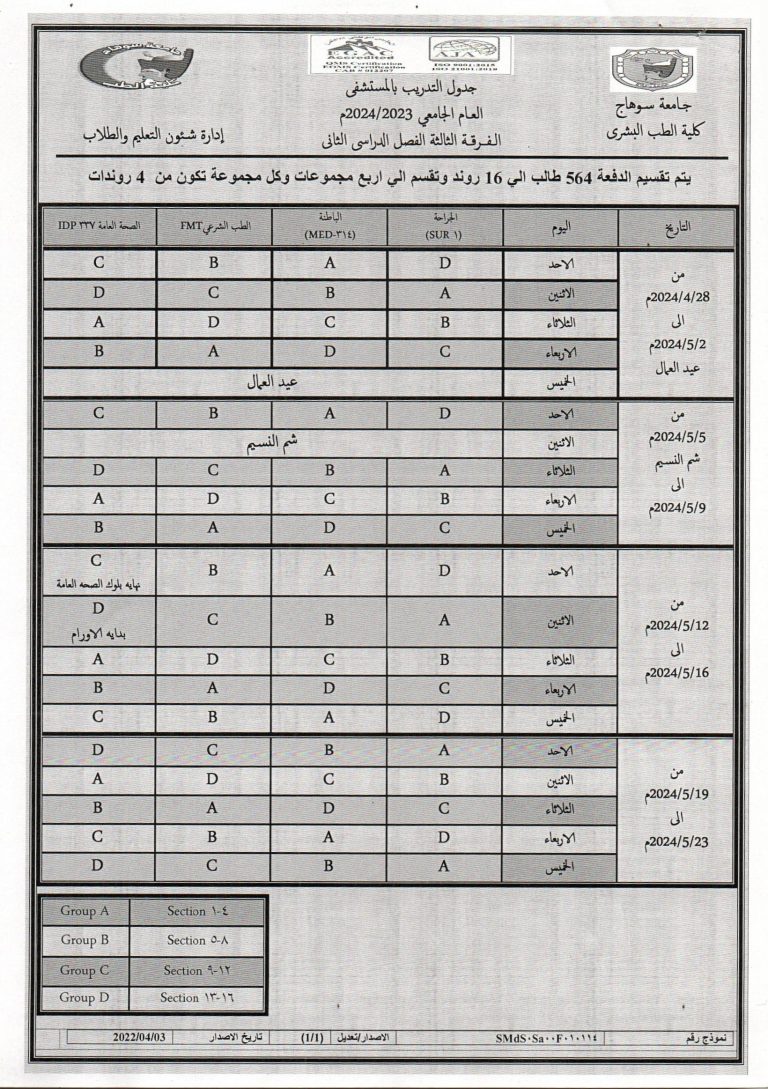 جامعة سوهاج
كلية الطب البشرى
EGAC
Accredited
QMS Certification
EOMS Certification
CAB # 012207
AJA
ISO 9001:2015
ISO 21001:2018
جدول التدريب بالمستشفى
العام الجامعي 2024/2023م
الفرقة الثالثة الفصل الدراسى الثانى
جامعة سوهاج
كلية الطب
إدارة شئون التعليم والطلاب
يتم تقسيم الدفعة 564 طالب الي 16 روند وتقسم الي اربع مجموعات وكل مجموعة تكون من 4 روندات
التاريخ اليوم الجراحة (SUR ١) الباطنة (MED-٣١٤) الطب الشرعي FMT الصحة العامة IDP ٣٣٧
من 2024/4/28م الى 2024/5/2م عيد العمال
الاحد D A B C
الاثنين A B C D
الثلاثاء B C D A
الاربعاء C D A B
الخميس عيد العمال
من 2024/5/5م شم النسيم الى 2024/5/9م
الاحد D A B C
الاثنين شم النسيم
الثلاثاء A B C D
الاربعاء B C D A
الخميس C D A B
من 2024/5/12م الى 2024/5/16م
الاحد D A B C نهايه بلوك الصحه العامة
الاثنين A B C D بدايه الاورام
الثلاثاء B C D A
الاربعاء C D A B
الخميس D A B C
من 2024/5/19م الى 2024/5/23م
الاحد A B C D
الاثنين B C D A
الثلاثاء C D A B
الاربعاء D A B C
الخميس A B C D
Group A Section ١-٤
Group B Section ٥-٨
Group C Section ٩-١٢
Group D Section ١٣-١٦
نموذج رقم SMdS٠Sa٠٠F٠١٠١١٤ الاصدار/تعديل (1/1) تاريخ الاصدار 2022/04/03